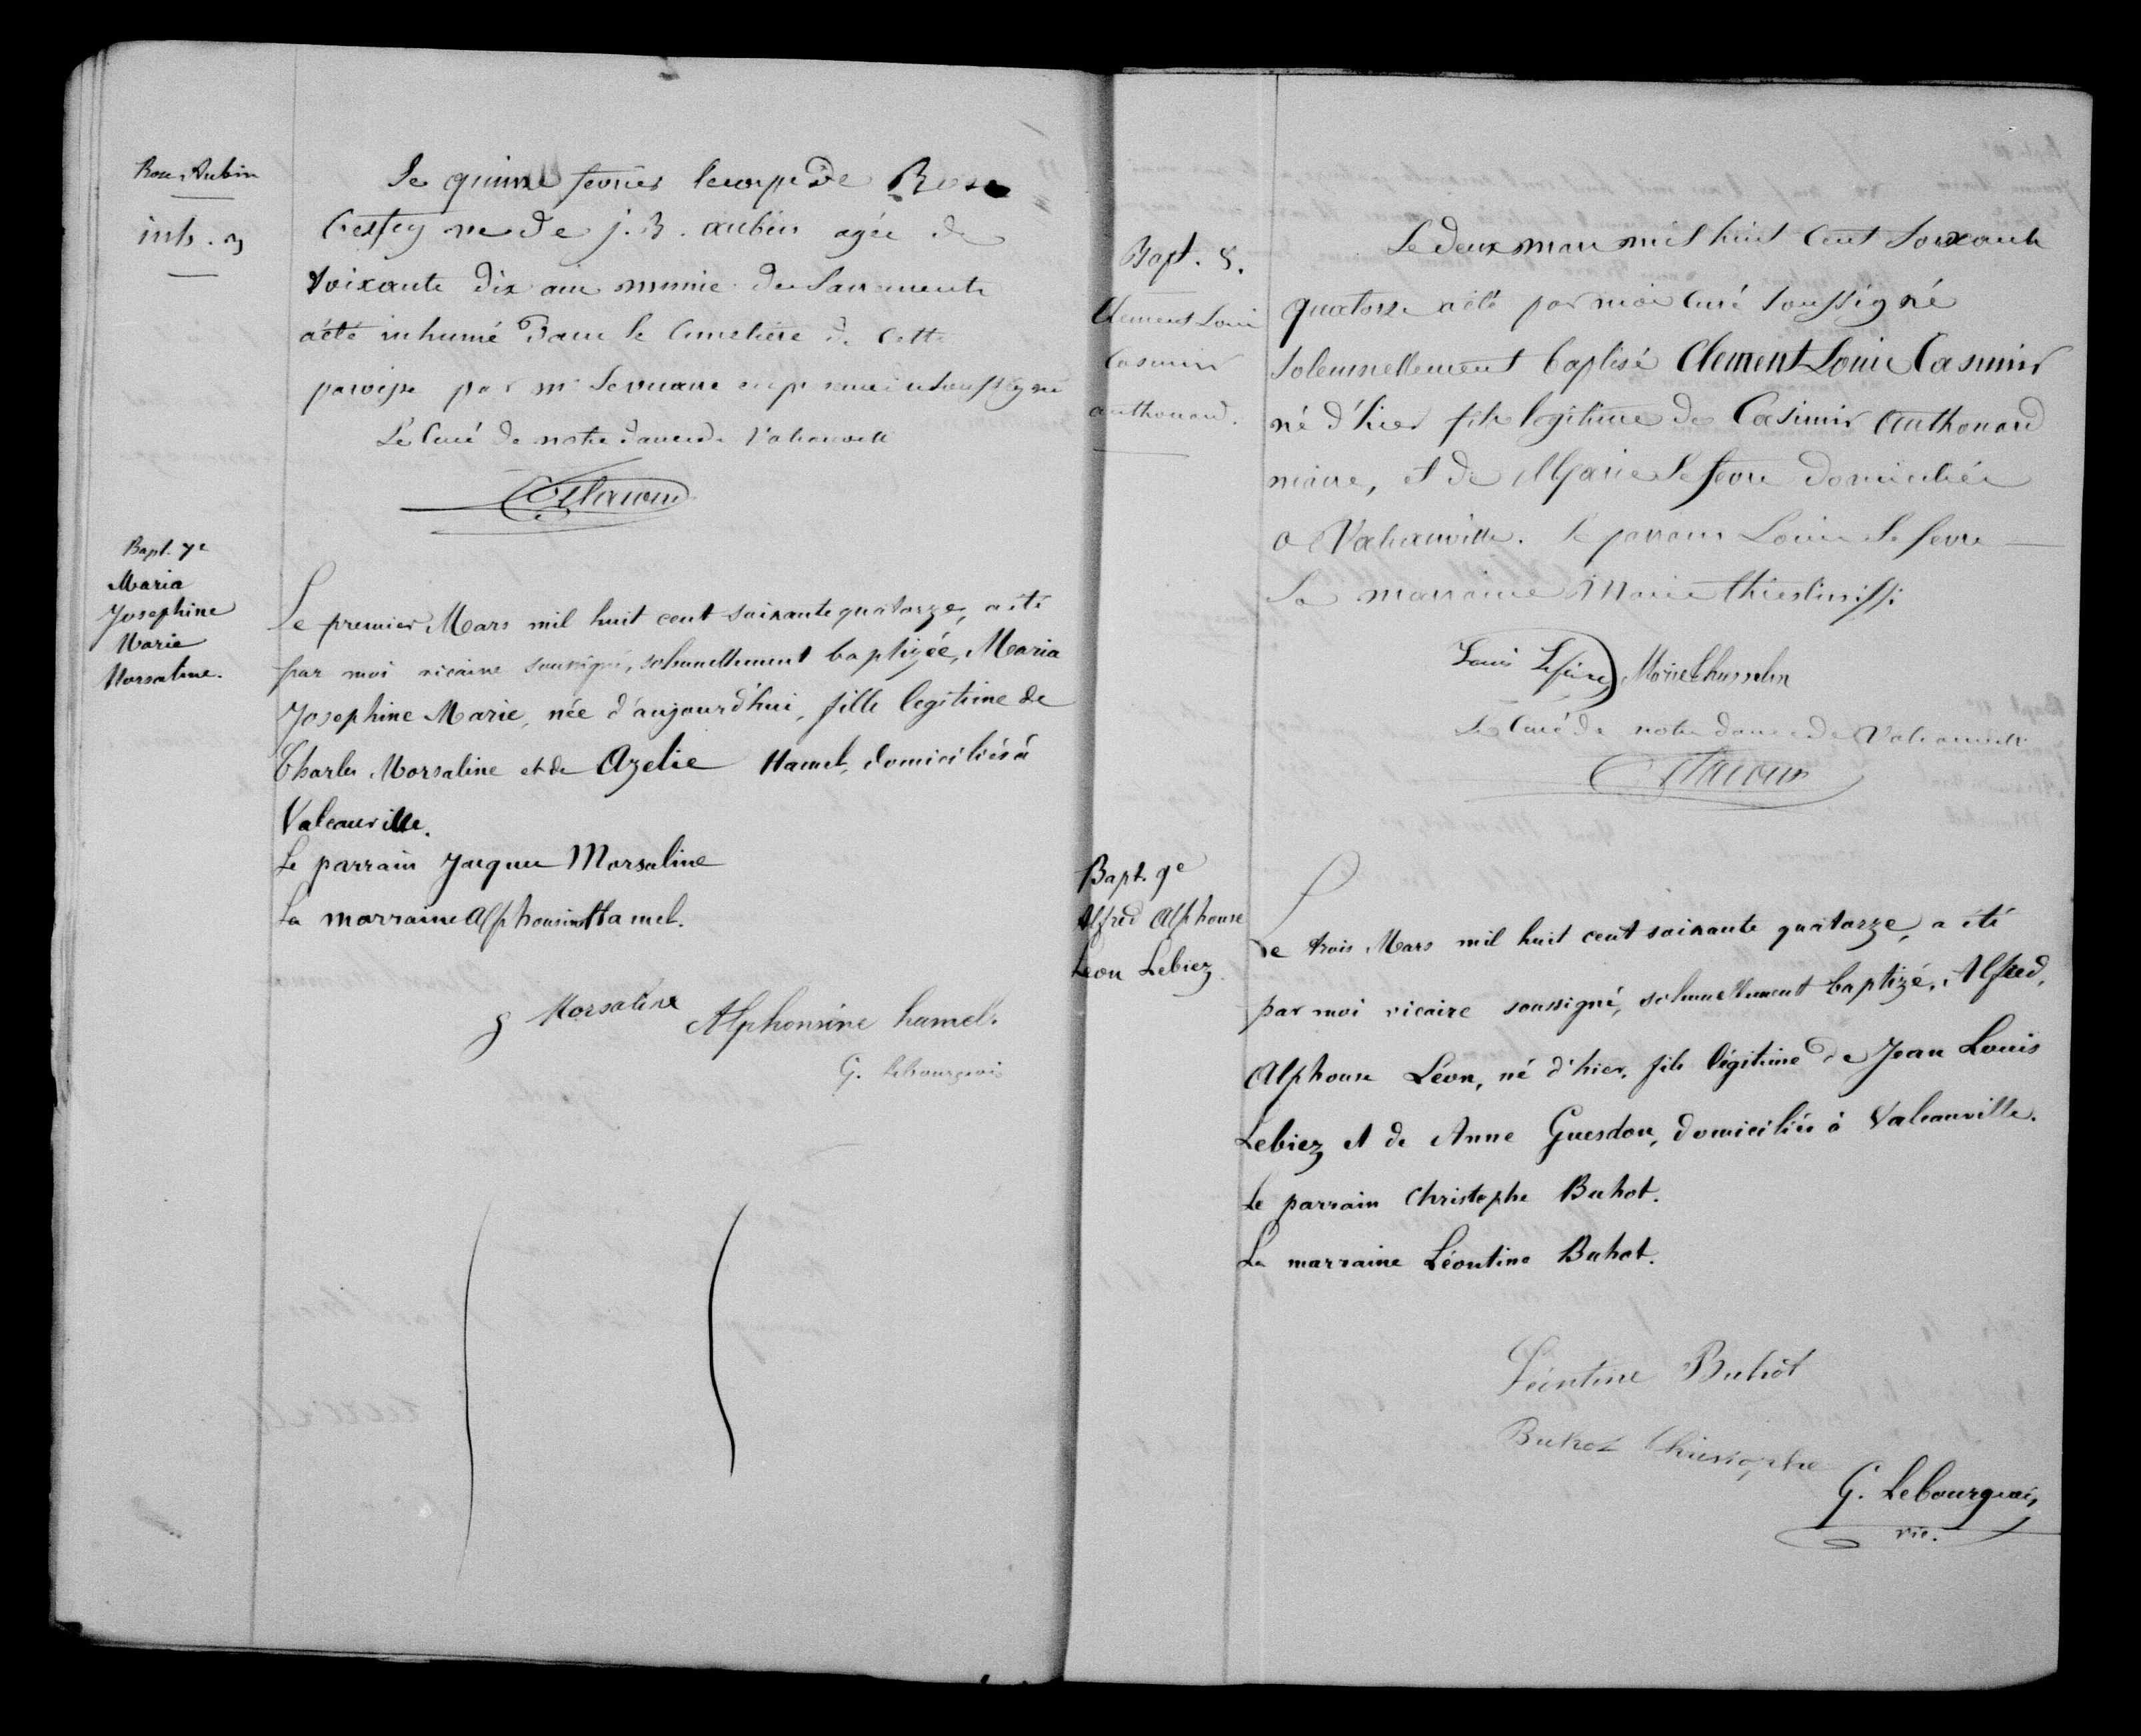 Rose Aubin
inh. 3
Le quinze fevrier le corps de Rose
ve de j. B. aubin agée de
soixante dix ans munie des Sacrements
a été inhumé dans le Cimetière de cette
paroisse par mr soussigné
Le Curé de notre dame de Valcanville
Bapt. 7e
Maria
Josephine
Marie
Morsaline.
Le premier Mars mil huit cent soixante quatorze, a été
par moi vicaire soussigné, solennellement baptizée, Maria
Josephine Marie, née d'aujourd'hui, fille legitime de
Charles Morsaline et de Azelie Hamel, domiciliés à
Valcanville.
Le parrain Jacques Morsaline
La marraine Alphonsine Hamel.
J Morsaline Alphonsine hamel.
G. Lebourgeois
Bapt. 8.
Clement Louis
Casimir
anthouard.
Le deux mars mil huit cent soixante
quatorze a été par moi Curé soussigné
solennellement baptisé Clement Louis Casimir
né d'hier fils legitime de Casimir Anthouard
maire, et de Marie Le fevre domiciliés
a Valcanville. le parrain Louis Le fevre
La marraine Marie
Louis Lefevre Marie
Le Curé de notre dame de Valcanville
Bapt. 9e
Alfred Alphonse
Léon Lebiez
Le trois Mars mil huit cent soixante quatorze, a été
par moi vicaire soussigné, solennellement baptizé, Alfred,
Alphonse Léon, né d'hier, fils légitime de Jean Louis
Lebiez et de Anne Guesdon, domiciliés à Valcanville.
Le parrain Christophe Buhot.
La marraine Léontine Buhot.
Léontine Buhot
Buhot Christophe
G. Lebourgeois
vic.